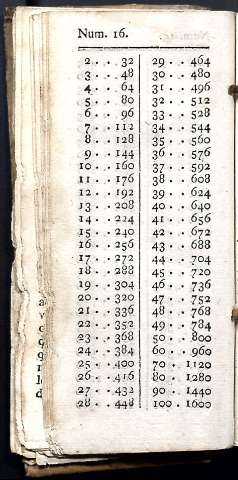 Num. 16.
2 . . 32 29 . . 464
3 . . 48 30 . . 480
4 . . 64 31 . . 496
5 . . 80 32 . . 512
6 . . 96 33 . . 528
7 . . 112 34 . . 544
8 . . 128 35 . . 560
9 . . 144 36 . . 576
10 . . 160 37 . . 592
11 . . 176 38 . . 608
12 . . 192 39 . . 624
13 . . 208 40 . . 640
14 . . 224 41 . . 656
15 . . 240 42 . . 672
16 . . 256 43 . . 688
17 . . 272 44 . . 704
18 . . 288 45 . . 720
19 . . 304 46 . . 736
20 . . 320 47 . . 752
21 . . 336 48 . . 768
22 . . 352 49 . . 784
23 . . 368 50 . . 800
24 . . 384 60 . . 960
25 . . 400 70 . . 1120
26 . . 416 80 . . 1280
27 . . 432 90 . . 1440
28 . . 448 100 . . 1600